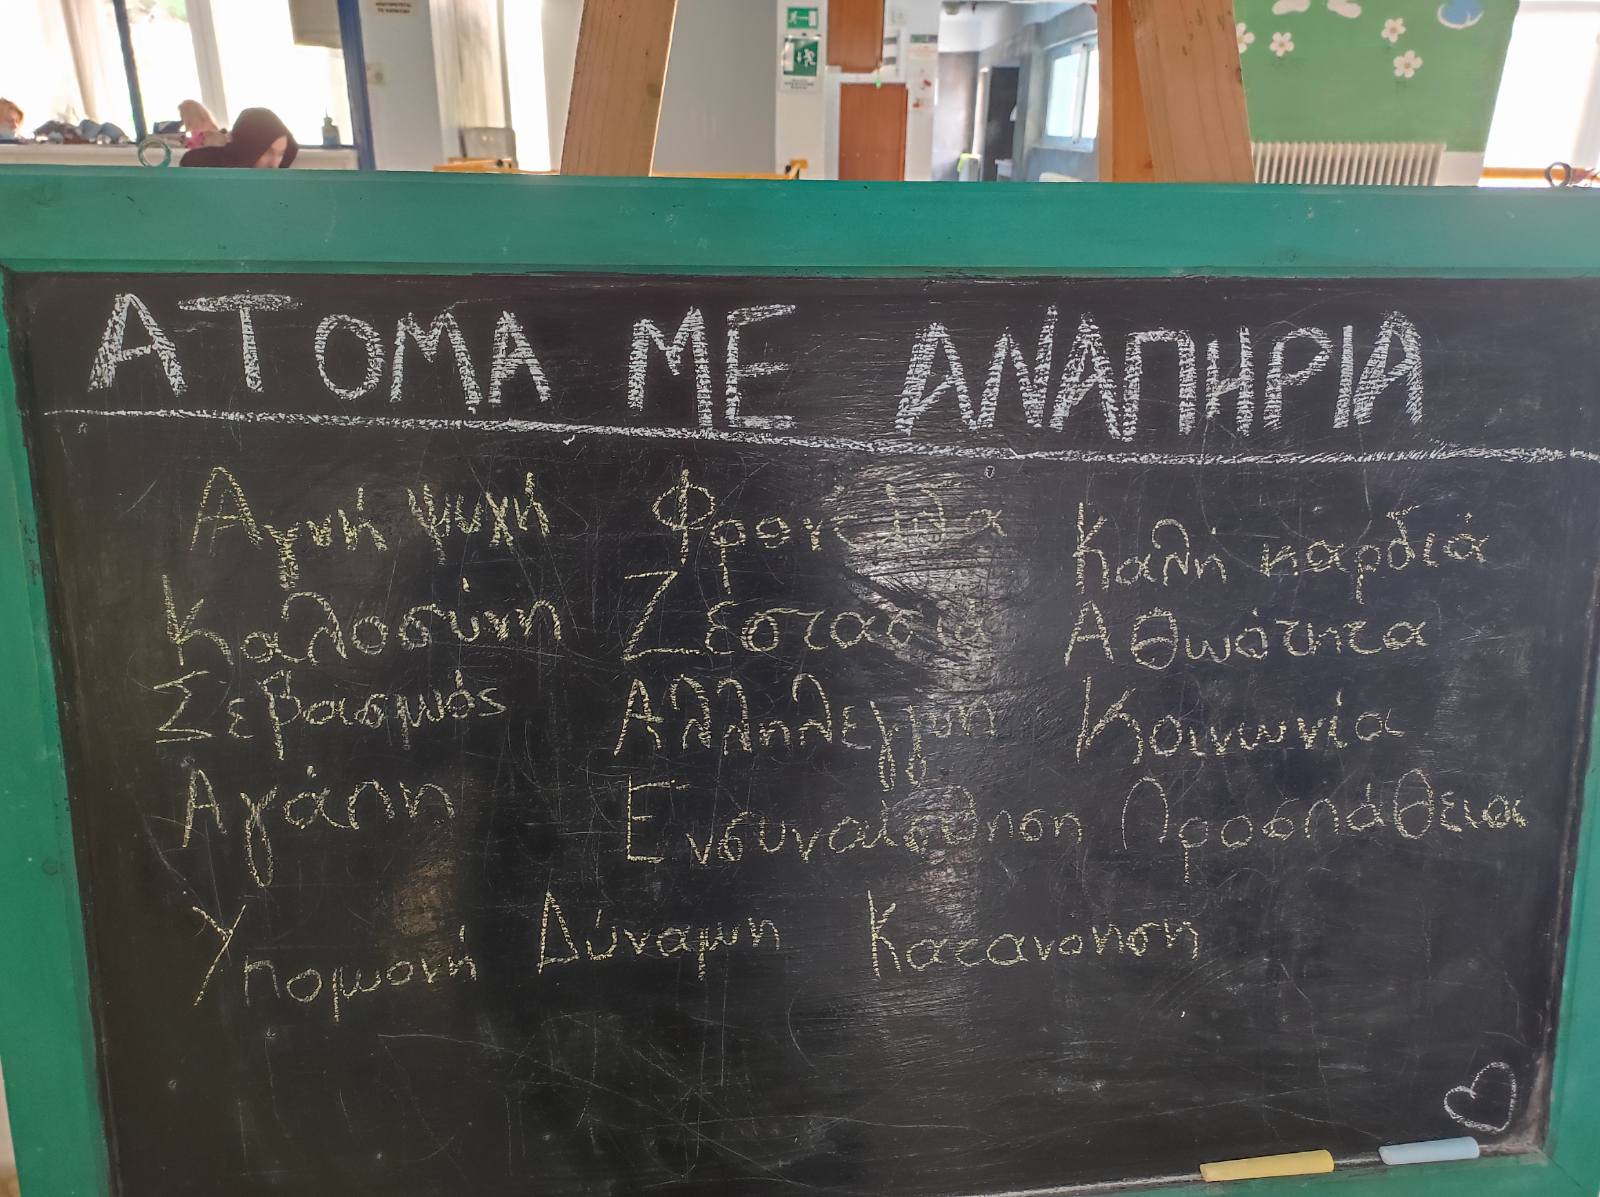 ΑΤΟΜΑ ΜΕ ΑΝΑΠΗΡΙΑ
Αγνή ψυχή Φροντίδα Καλή καρδιά
Καλοσύνη Ζεστασιά Αθωότητα
Σεβασμός Αλληλεγγύη Κοινωνία
Αγάπη Ενσυναίσθηση Προσπάθεια
Υπομονή Δύναμη Κατανόηση